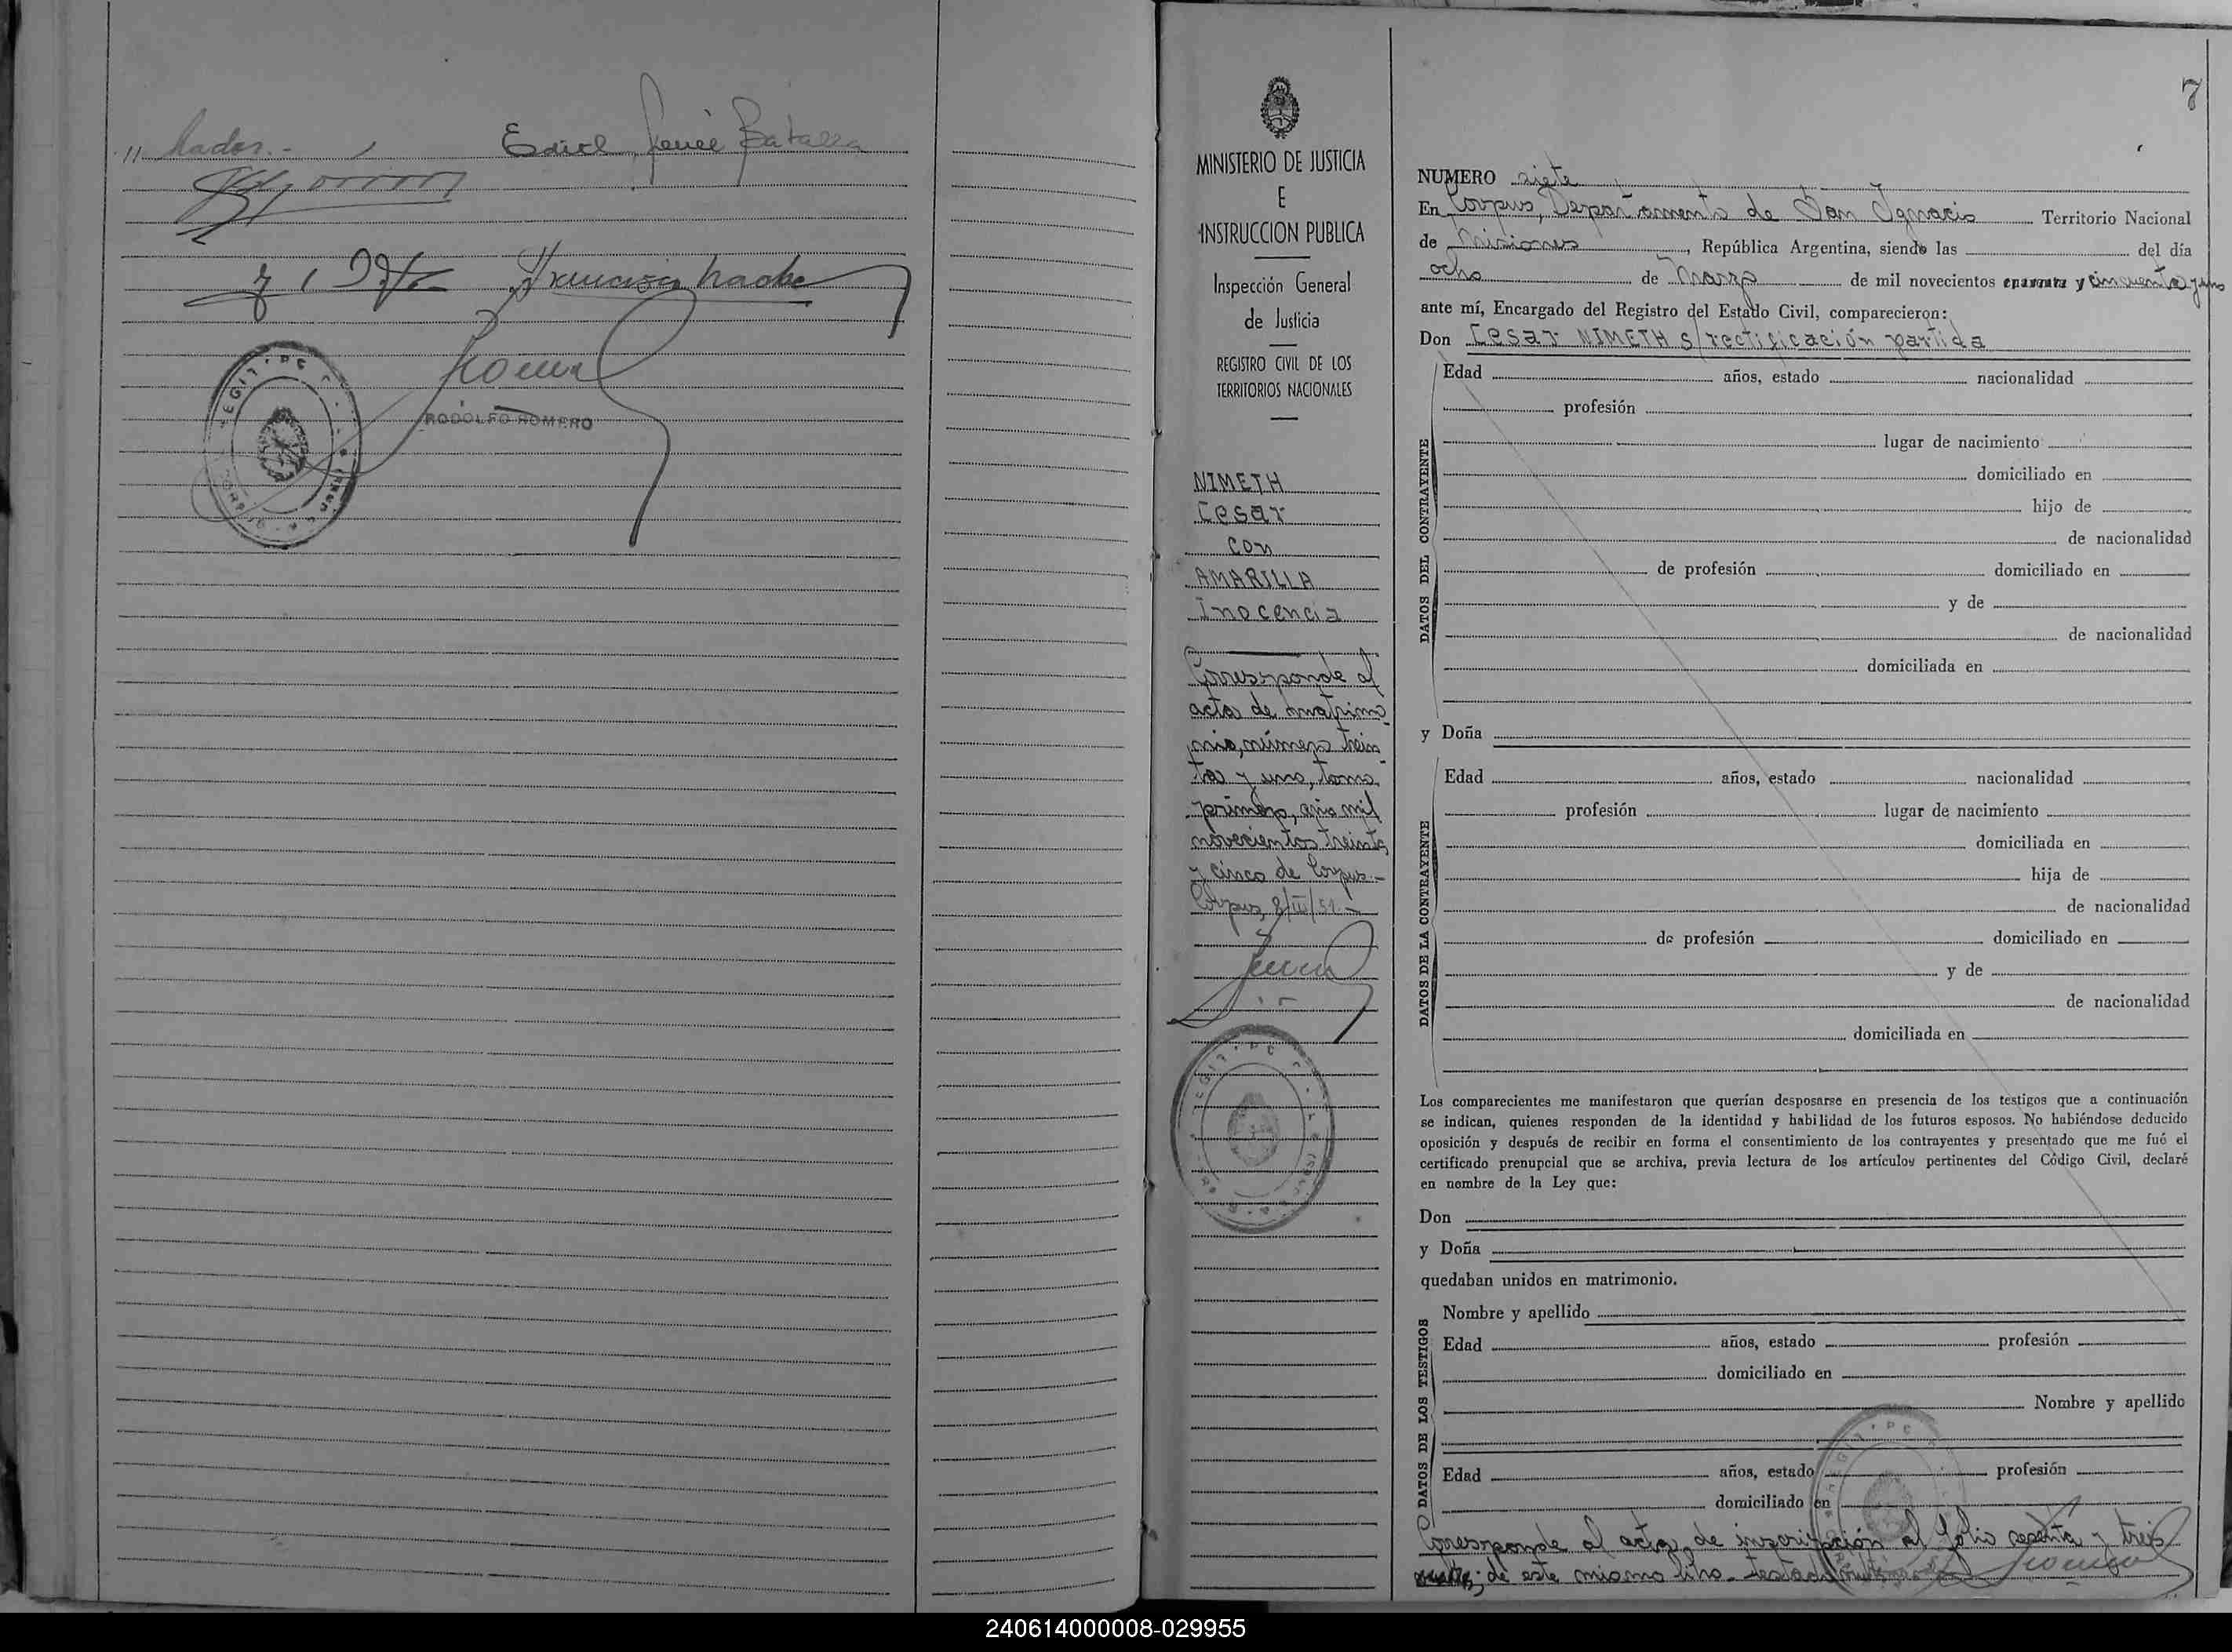 7
RODOLFO ROMERO
MINISTERIO DE JUSTICIA
E
INSTRUCCION PUBLICA
Inspección General
de Justicia
REGISTRO CIVIL DE LOS
TERRITORIOS NACIONALES
NIMETH
Cesar
con
AMARILLA
Inocencia
Corresponde al
acta de matrimo
nio, número trein
ta y uno, tomo
primero, año mil
novecientos treinta
y cinco de Corpus.-
Corpus, 8/III/51.-
NUMERO siete
En Corpus, Departamento de San Ignacio Territorio Nacional
de Misiones, República Argentina, siendo las del día
ocho de Marzo de mil novecientos cuarenta y cincuenta y uno
ante mí, Encargado del Registro del Estado Civil, comparecieron:
Don Cesar NIMETH s/rectificación partida
DATOS DEL CONTRAYENTE
Edad años, estado nacionalidad
profesión
lugar de nacimiento
domiciliado en
hijo de
de nacionalidad
de profesión domiciliado en
y de
de nacionalidad
domiciliada en
y Doña
DATOS DE LA CONTRAYENTE
Edad años, estado nacionalidad
profesión lugar de nacimiento
domiciliada en
hija de
de nacionalidad
de profesión domiciliado en
y de
de nacionalidad
domiciliada en
Los comparecientes me manifestaron que querían desposarse en presencia de los testigos que a continuación
se indican, quienes responden de la identidad y habilidad de los futuros esposos. No habiéndose deducido
oposición y después de recibir en forma el consentimiento de los contrayentes y presentado que me fué el
certificado prenupcial que se archiva, previa lectura de los artículos pertinentes del Código Civil, declaré
en nombre de la Ley que:
Don
y Doña
quedaban unidos en matrimonio.
DATOS DE LOS TESTIGOS
Nombre y apellido
Edad años, estado profesión
domiciliado en
Nombre y apellido
Edad años, estado profesión
domiciliado en
Corresponde al acta de inscripción al folio sesenta y tres
de este mismo libro
240614000008-029955